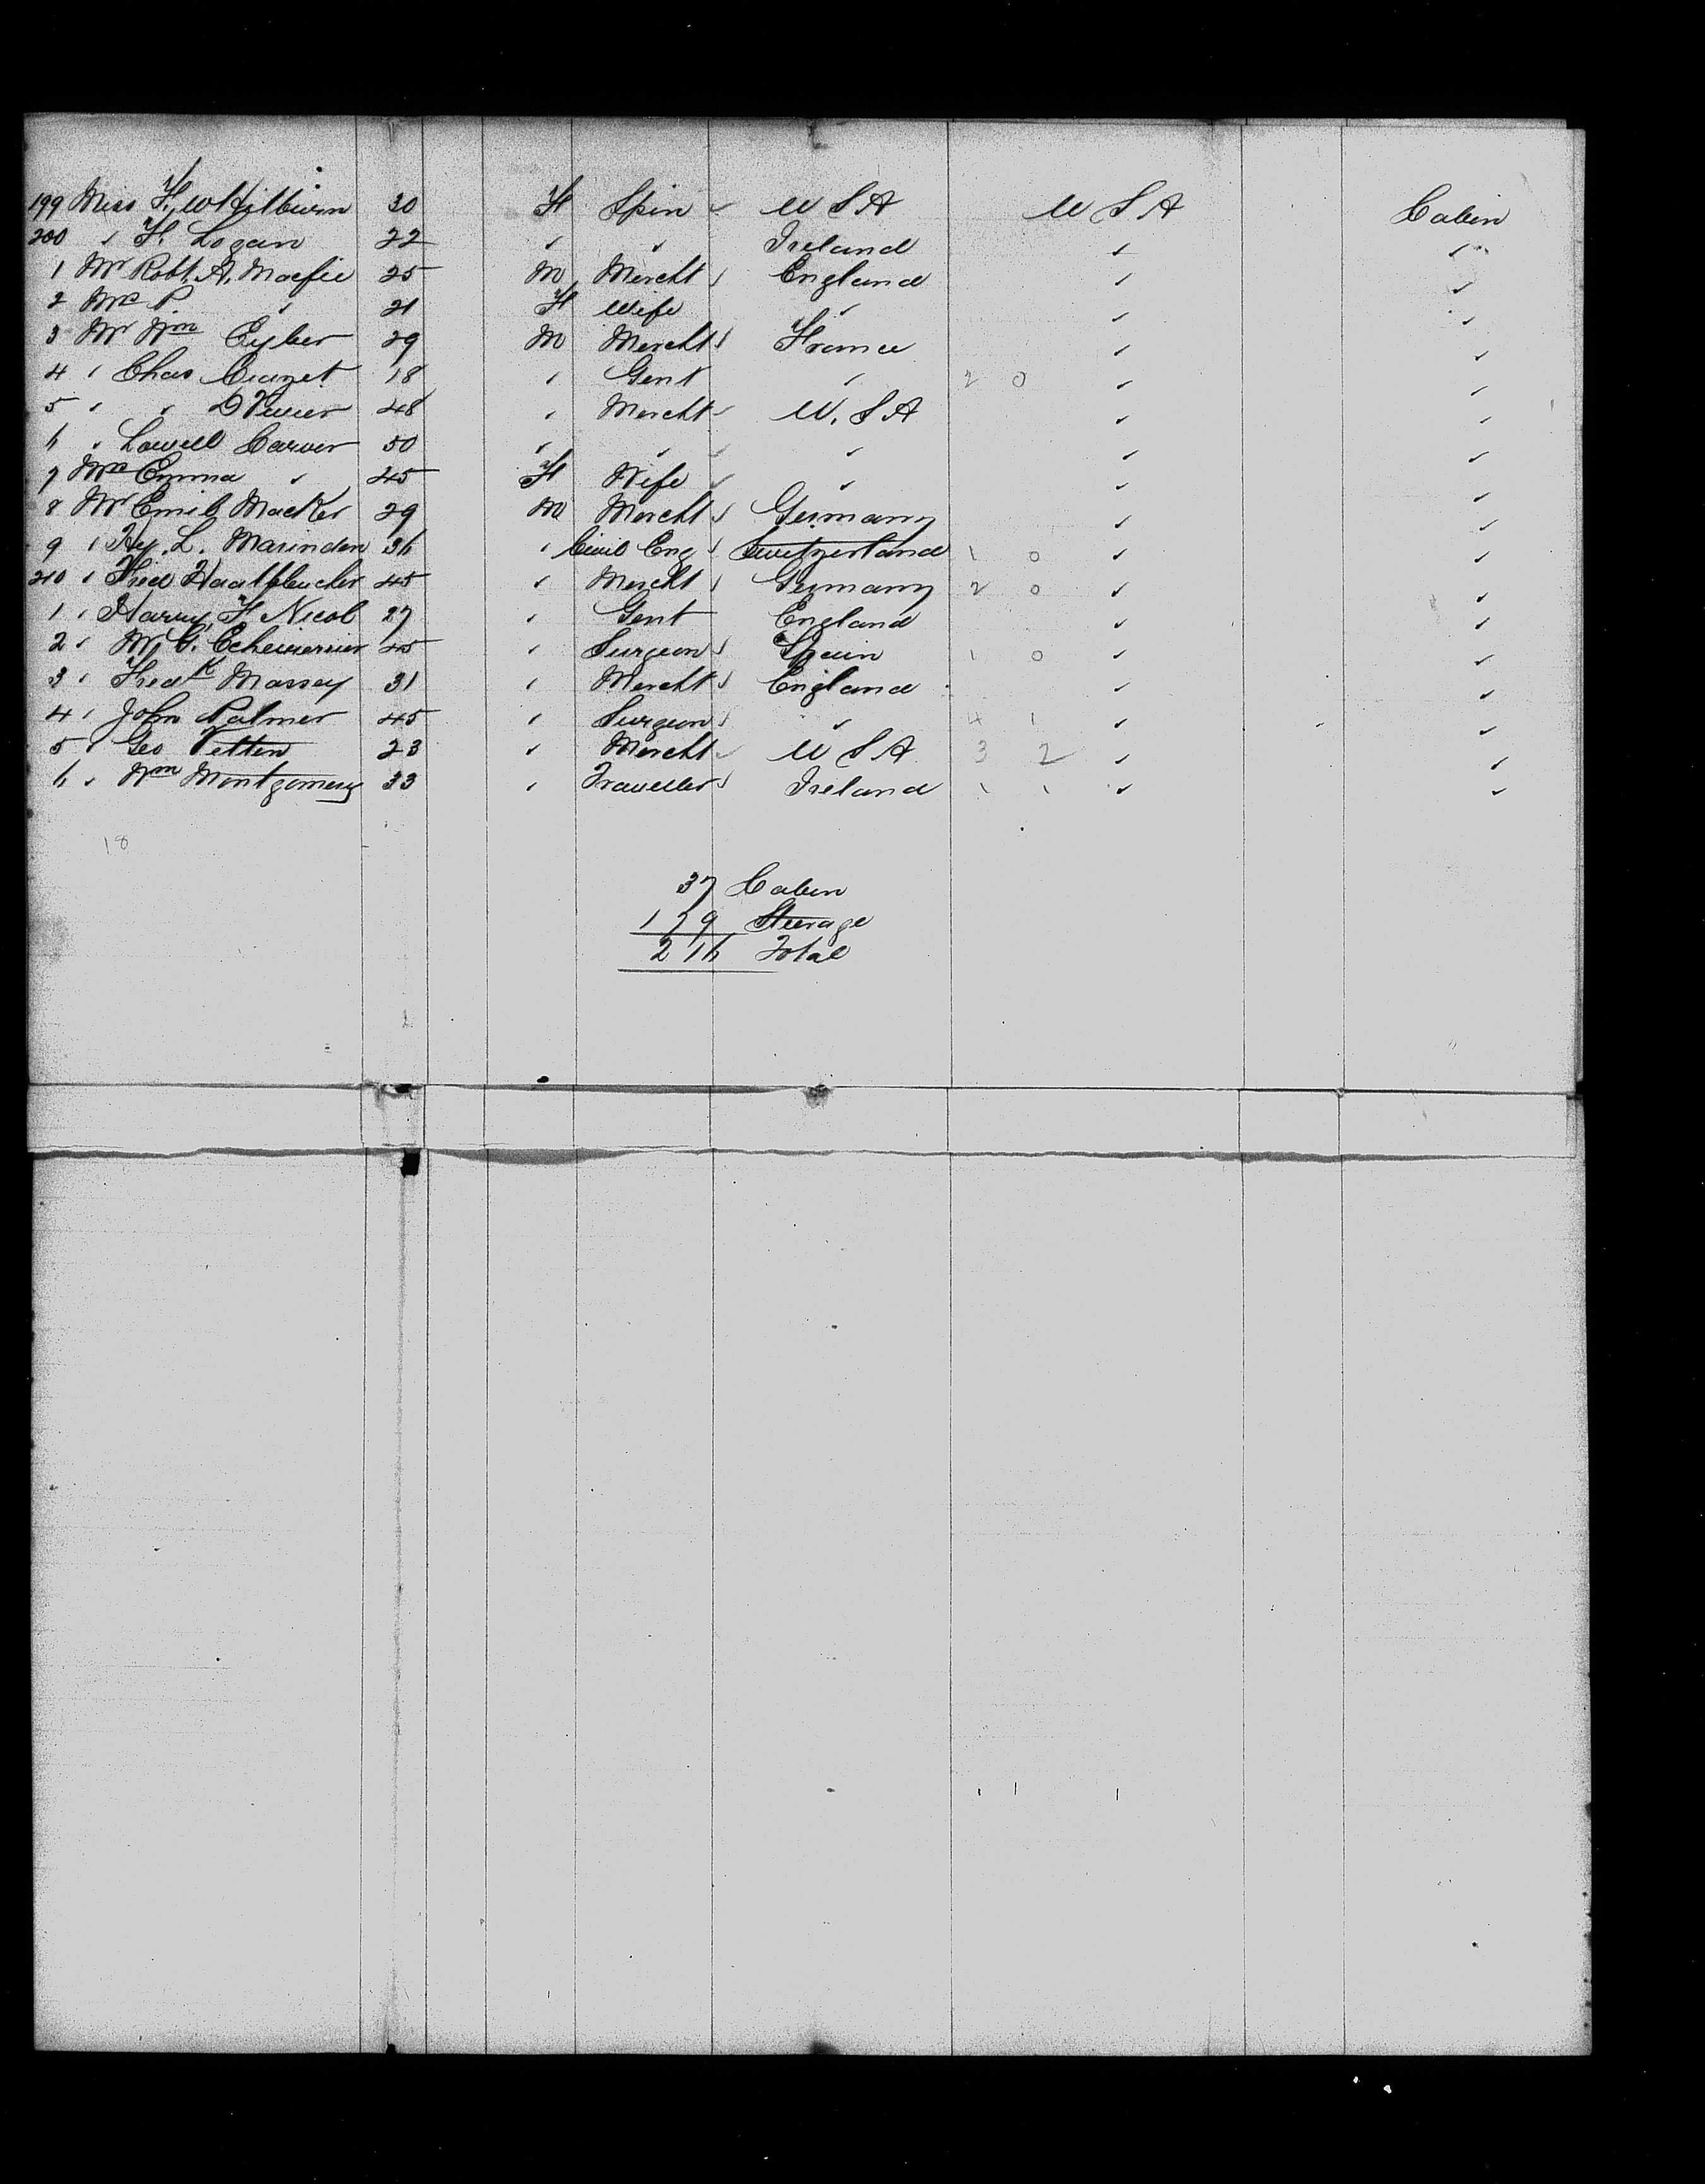 199 Miss F. W Hilburn 30 F Spin U S A U S A Cabin
200 " F. Logan 22 " " Ireland " "
1 Mr Robt. A. Macfie 25 M Mercht England " "
2 Mrs P. " 21 F Wife " " "
3 Mr Wm Eyber 29 M Mercht France " "
4 " Chas 18 " Gent " 2 0 " "
5 " " 48 " Mercht U. S A " "
6 " Lowell Carver 50 " " " " "
7 Mrs Emma " 45 F Wife " " "
8 Mr Emil Macker 29 M Mercht Germany " "
9 " Hy. L. Marinden 36 " Civil Eng Switzerland 1 0 " "
210 " Fred 45 " Mercht Germany 2 0 " "
1 " Harvey F Nicol 27 " Gent England " "
2 " 45 " Surgeon Spain 1 0 " "
3 " Fredk Massey 31 " Mercht England " "
4 " John Palmer 45 " Surgeon " 4 1 " "
5 " Geo Vetten 23 " Mercht U S A 3 2 " "
6 " Wm Montgomery 33 " Traveller Ireland 1 1 " "
18
37 Cabin
179 Steerage
216 Total